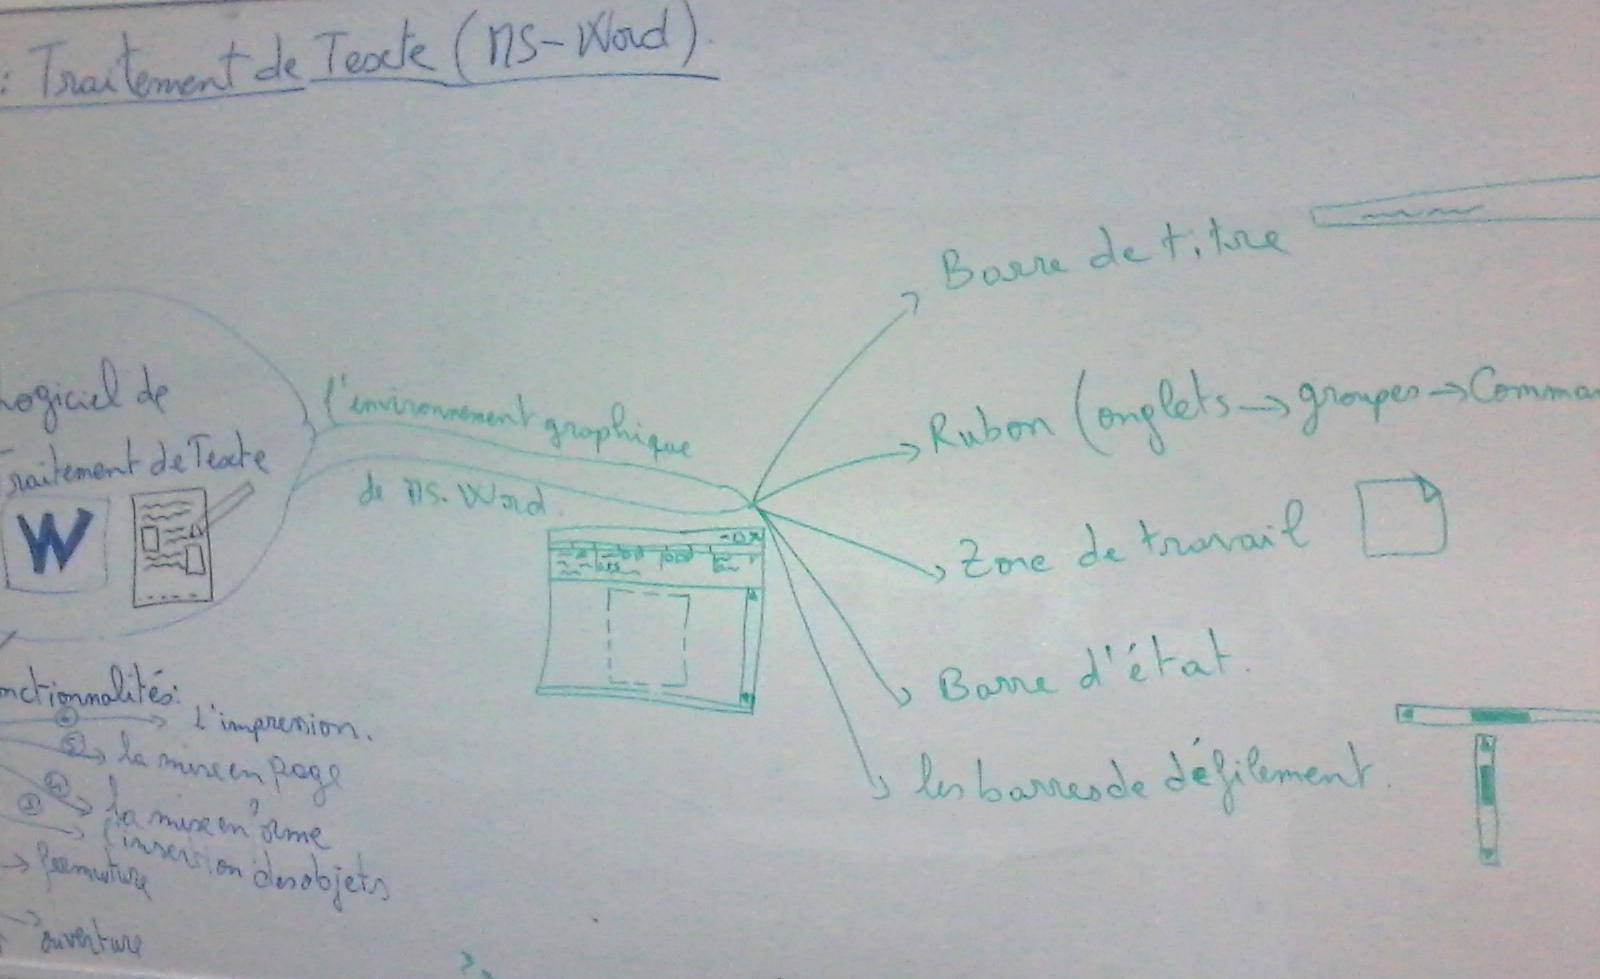 : Traitement de Texte (MS-Word).
Logiciel de
Traitement de Texte
W
l'environnement graphique
de MS-Word.
Barre de titre
Ruban (onglets → groupes → Comman
Zone de travail
Barre d'état.
les barres de défilement.
onctionnalités:
⑥ → l'impression.
⑤ → la mise en page
④ → la mise en forme
③ → l'insertion des objets
→ fermuture
→ ouverture